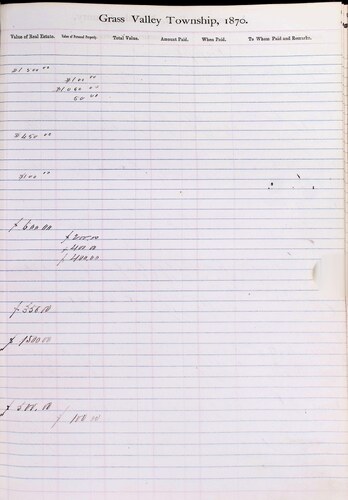 Grass Valley Township, 1870.
Value of Real Estate. Value of Personal Property. Total Value. Amount Paid. When Paid. To Whom Paid and Remarks.
$1500 00
$100 00
$1060 00
50 00
$650 00
$100 00
$ 600.00
$ 200.00
$ 400.00
$ 400.00
$ 350.00
$ 1500 00
$ 500.00
$ 150 00